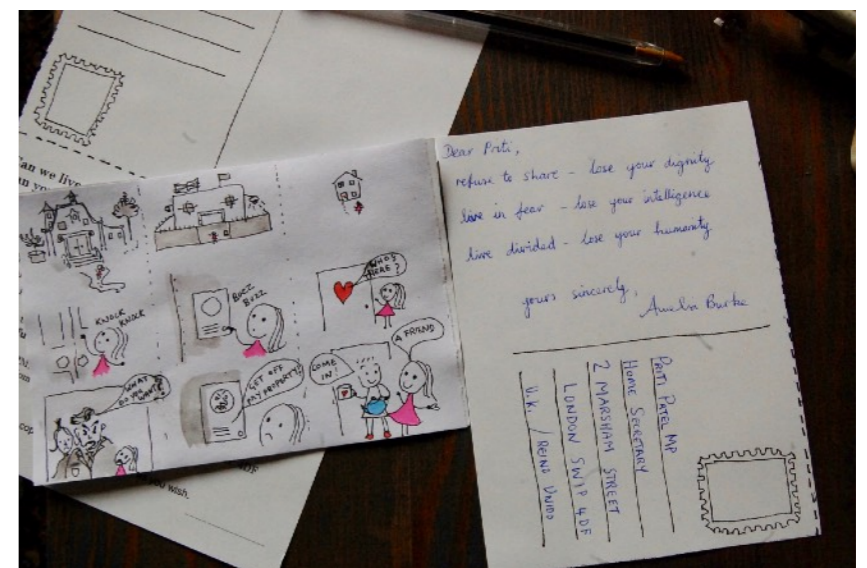 Can we live
KNOCK
KNOCK
BUZZ
BUZZ
WHO'S
HERE?
WHAT
DO YOU
WANT?
GET OFF
MY PROPERTY!
COME
IN!
A FRIEND
you wish.
Dear Priti,
refuse to share – lose your dignity
live in fear – lose your intelligence
live divided – lose your humanity
yours sincerely,
Amelia Burke
PRITI PATEL MP
HOME SECRETARY
2 MARSHAM STREET
LONDON SW1P 4DF
U.K. / REINO UNIDO